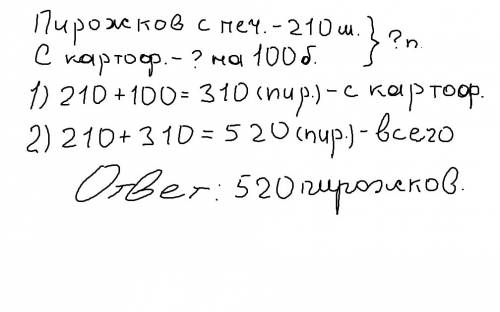 Пирожков с печ. - 210 ш. } ? п.
С картоф. - ? на 100 б.
1) 210 + 100 = 310 (пир.) - с картоф.
2) 210 + 310 = 520 (пир.) - всего
Ответ: 520 пирожков.